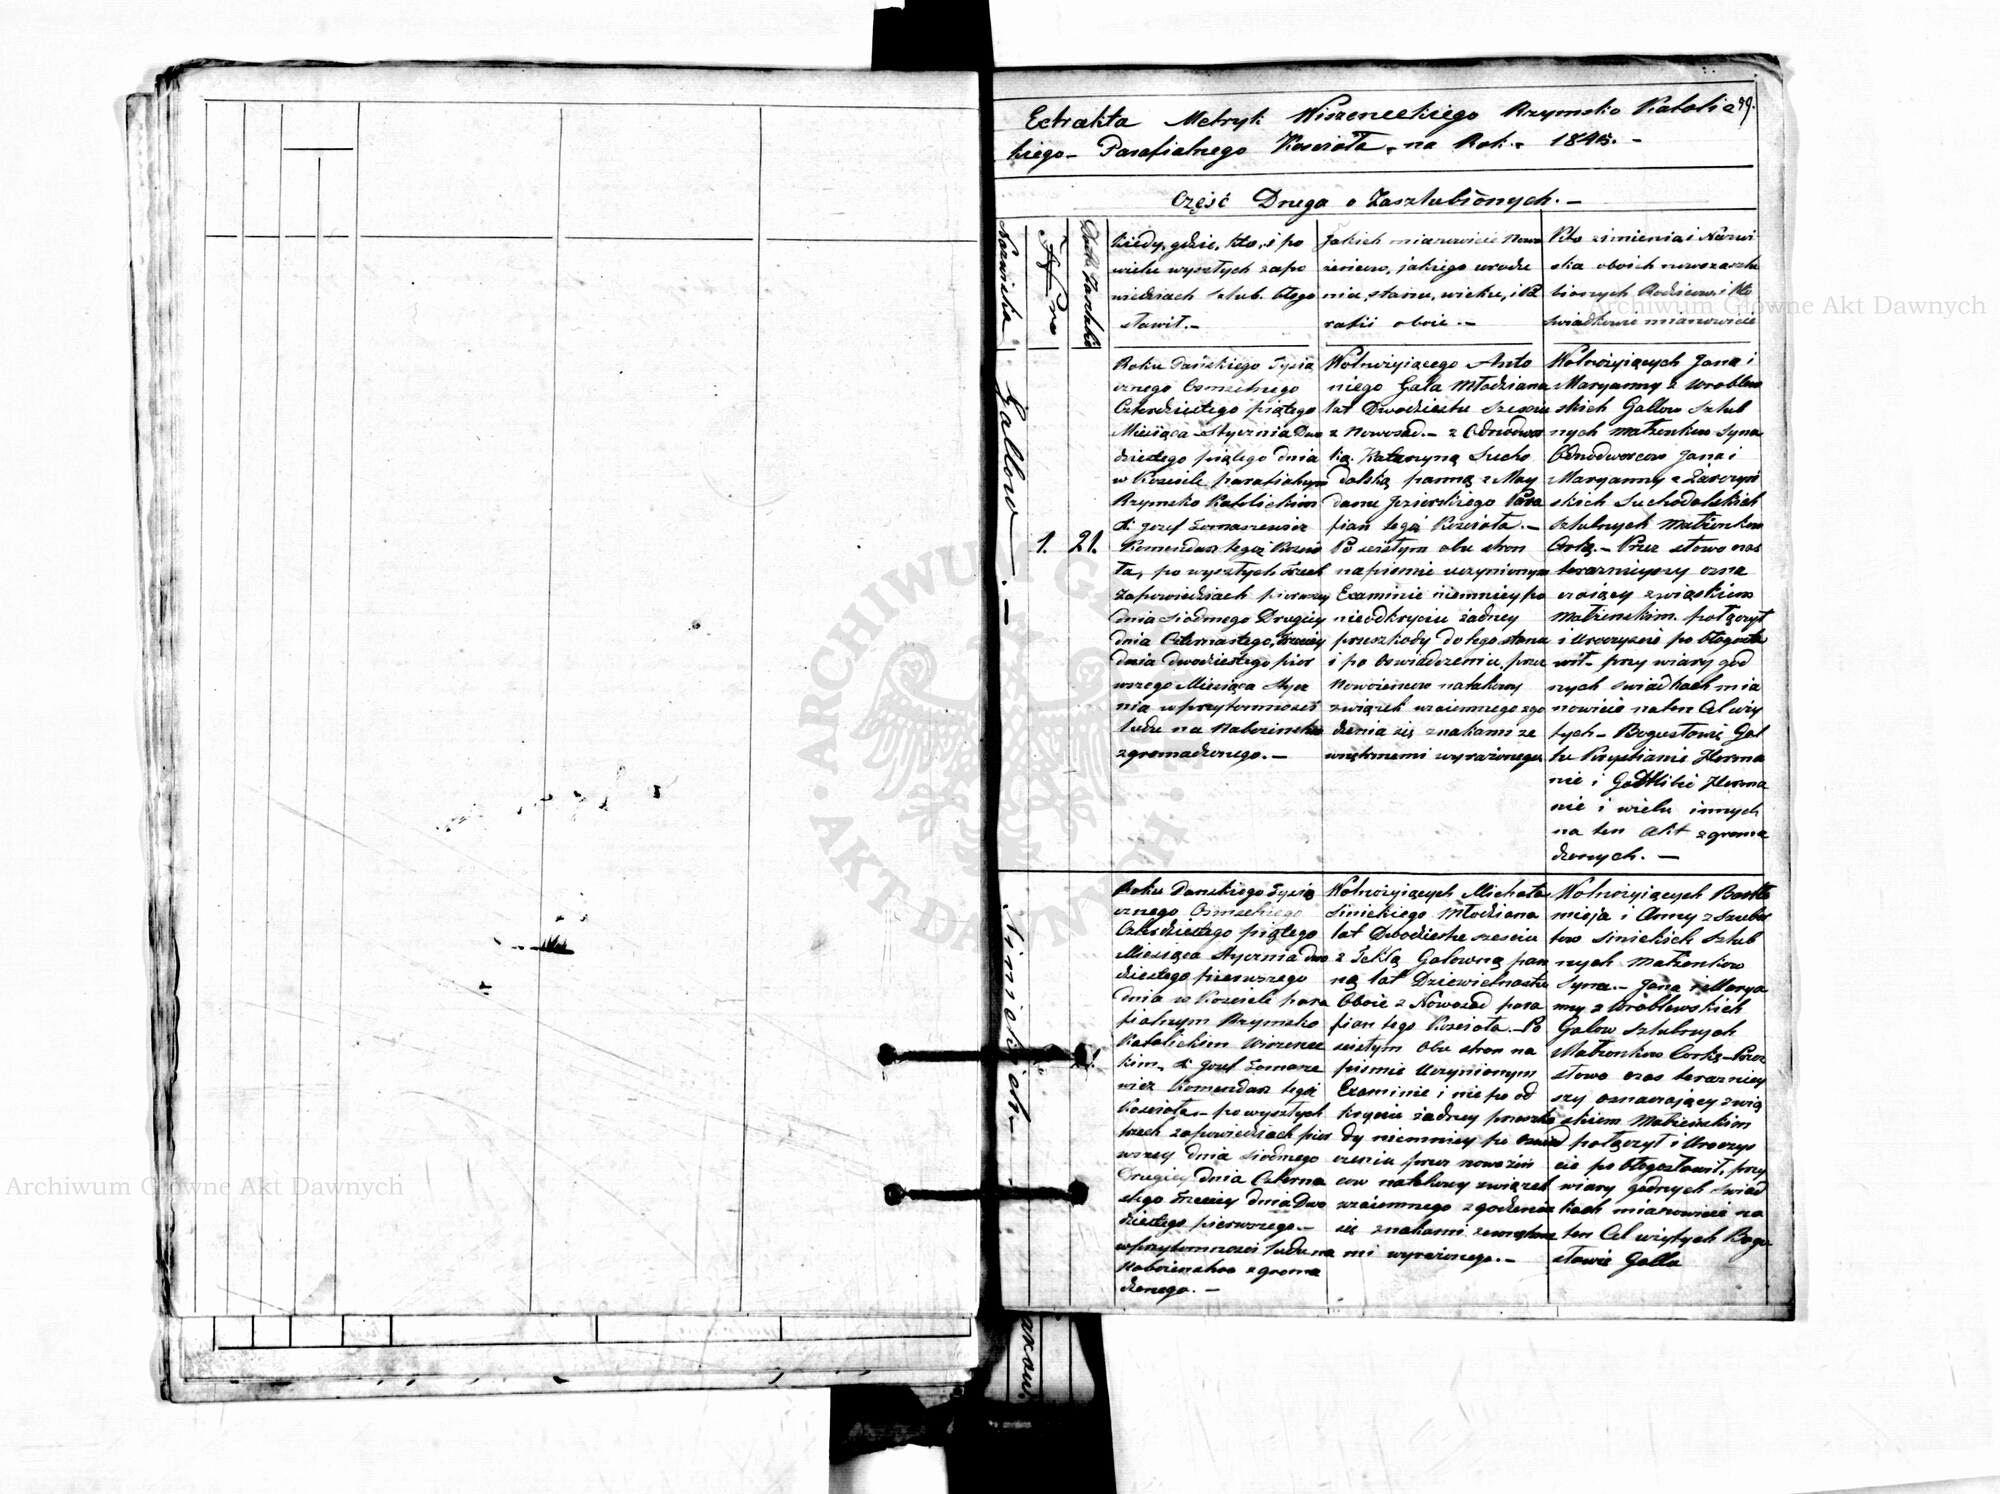 Extrakta Metryk Wiszeneckiego Rzymsko Katolic
99.
kiego - Parafialnego Kosciola, na Rok - 1845. -
Część Druga o Zaszlubionych. -
Nazwiska
Kiedy, gdzie, kto, i po
wielu wyszłych zapo
wiedziach szlub błogo
sławił. -
Jakich mianowicie nowo
żeńcow, jakiego urodze
nia, stanu, wieku, i Pa
rafii oboie. -
Kto z imienia i Nazwi
ska oboich nowozaszlu
bionych Rodzicow, i kto
swiadkowie mianowicie
Gallow. -
1.
21.
Roku Pańskiego Tysią
cznego Osmsetnego
Czterdziestego piątego
Miesiąca Stycznia Dwo
dziestego piątego dnia
w Kosciele parafialnym
Rzymsko Katolickim
X. Jozef Tomaszewicz
Komendarz tegoż Koscio
ła, po wyszłych trzech
zapowiedziach pierwszey
dnia siodmego Drugiey
dnia Czternastego, trzeciey
dnia dwodziestego pier
wszego Miesiąca Stycz
nia w przytomności
ludu na Nabożeństwo
zgromadzonego. -
Wolnożyiącego Anto
niego Gala Młodziana
lat Dwodziestu szesciu
z Nowosad. - z Odnodwor
ką Katarzyną Sucho
dolską panną z May
danu Jezierskiego Para
fian tegoż Kosciola. -
Po scistym obu stron
na pismie uczynionym
Examinie niemniey po
nieodkryciu żadney
przeszkody do tego stanu
i po oswiadczeniu, przez
Nowożencow natakowy
związek wzaiemnego zgo
dzenia się znakami ze
wnętrznemi wyrażonego
Wolnożyiących Jana i
Maryanny z Wroblew
skich Gallow szlub
nych małżonkow syna
Odnodworcow Jana i
Maryanny z
skich Suchodolskich
szlubnych małżonkow
Corkę. - Przez słowo oras
teraznieyszy ozna
czaiący związkiem
Małżenskim połączył
i Uroczyscie pobłogosła
wił - przy wiary god
nych swiadkach mia
nowicie na ten Cel wzy
tych - Bogusławie Gal
lu Krystianie Herma
nie i Gottlibie Herma
nie i wielu innych
na ten Akt zgroma
dzonych. -
Sinickich
Roku Pańskiego Tysią
cznego Osmsetnego
Czterdziestego piątego
Miesiąca Stycznia dwo
dziestego pierwszego
dnia w Kosciele para
fialnym Rzymsko
Katolickim Wiszenec
kim, X. Jozef Tomasze
wicz Komendarz tegoż
Kosciola - po wyszłych
trzech zapowiedziach pier
wszey dnia siodmego
Drugiey dnia Czterna
stego trzeciey dnia Dwo
dziestego pierwszego. -
w przytomnosci ludu na
Nabożenstwo zgroma
dzonego. -
Wolnożyiących Michała
Sinickiego Młodziana
lat Dwodziestu szesciu
z Teklą Galowną pan
ną lat Dziewietnastu
Oboie z Nowosad para
fian tego Kosciola. - Po
scistym Obu stron na
pismie Uczynionym
Examinie i nie po od
kryciu żadney przeszko
dy niemniey po oswiad
czeniu przez nowożeń
cow natakowy związek
wzaiemnego zgodzenia
się znakami zewnętrzne
mi wyrażonego. -
Wolnożyiących Bartło
mieja i Anny z Szuba
tow Sinickich szlub
nych Małżonkow
Syna. - Jana i Marya
nny z Wroblewskich
Galow szlubnych
Małżonkow Corkę - Przez
słowo oras teraznieyszy
szy oznaczaiący zwią
skiem Małżeńskim
połączył i Uroczys
cie pobłogosławił, przy
wiary godnych swiad
kach mianowicie na
ten Cel wzytych Bogu
sławie Galla
Archiwum Główne Akt Dawnych
Archiwum Główne Akt Dawnych
ARCHIWUM GŁÓWNE AKT DAWNYCH